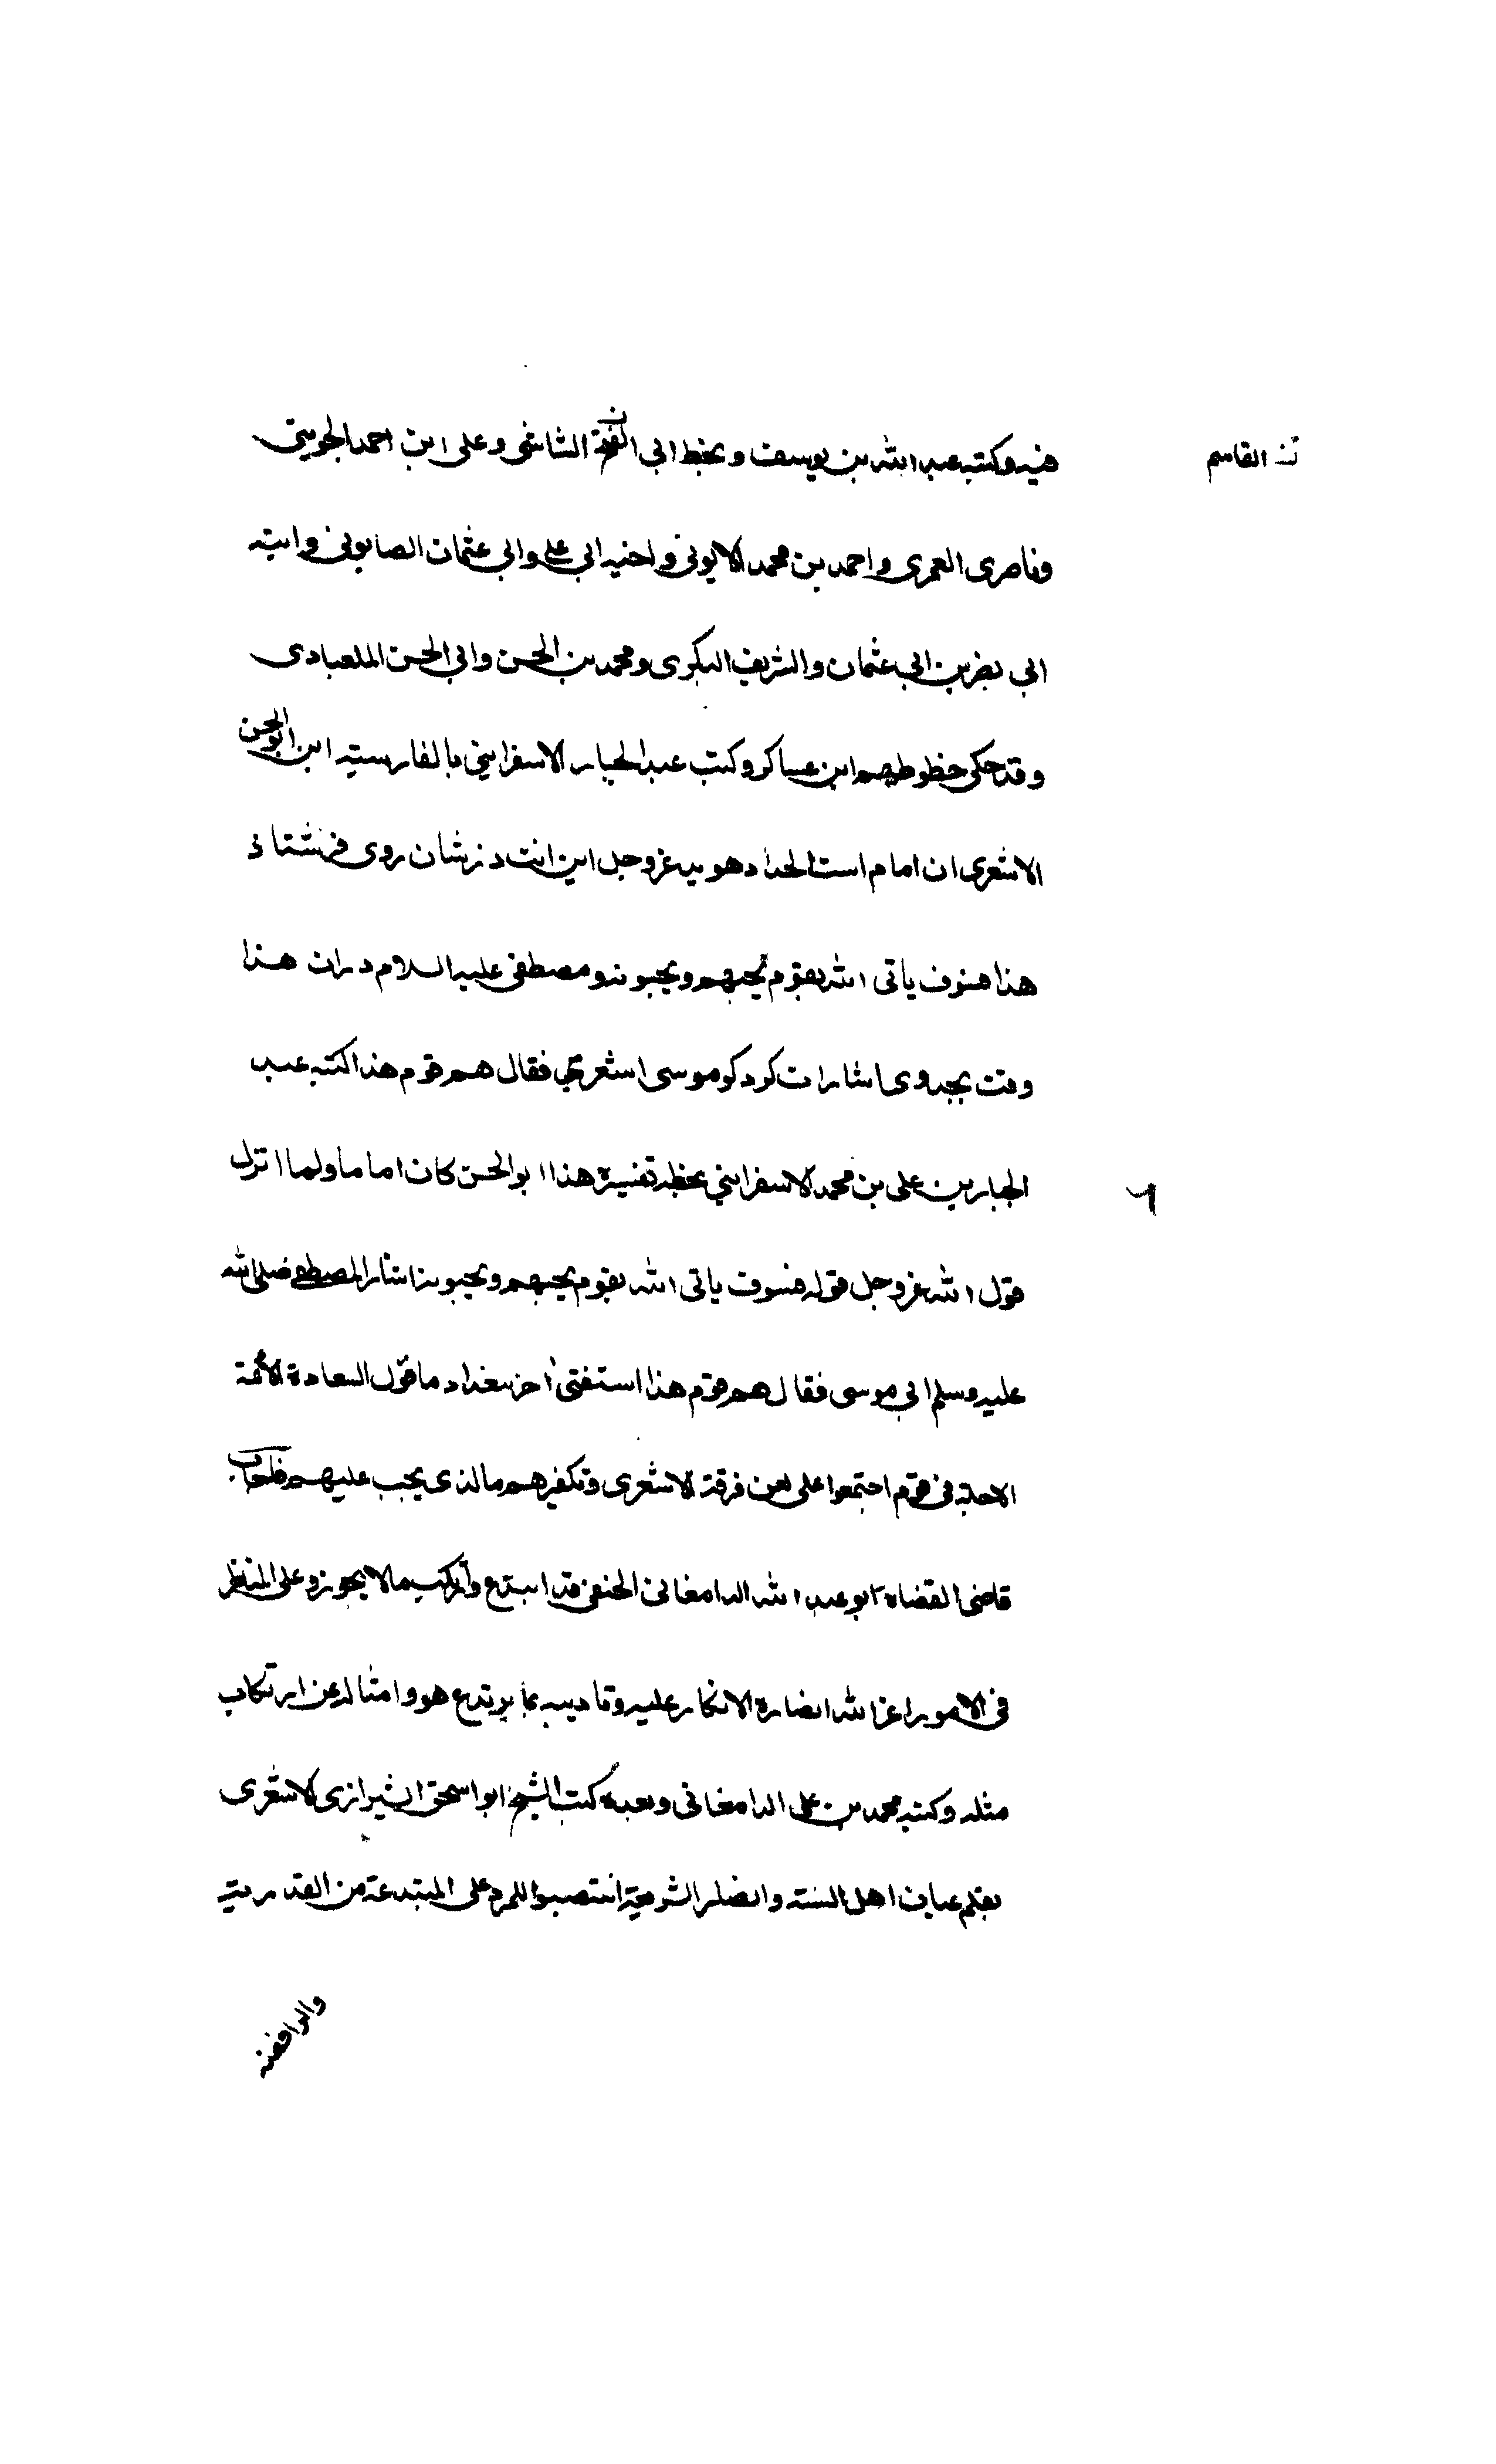 فيه وكتبه عبد الله بن يوسف وبخط ابي الفتح الشاشى وعلى ابن احمد الجوينى
ن القاسم
وناصرى العمرى واحمد بن محمد الايوبى واخيه ابي على وابي عثمان الصابونى وابنه
ابي نصر بن ابي عثمان والشريف البكرى ومحمد بن الحسن وابي الحسن الملعبادى
وقد حكى خطوطهم ابن عساكر وكتب عبد الجبار الاسفراينى بالفارسيه ابن ابو الحسن
الاشعرى ان امام است عز وجل اين در شان روى فرشتاذ
هذا فسوف ياتى الله بقوم يحبهم ويحبونه ومصطفى عليه السلام دران هذا
وقت بجدوى اشارات كرد كو موسى اشعرى فقال هم قوم هذا كتبه عبد
الجبار بن على بن محمد الاسفراينى بخطه تفسيره هذا ابو الحسن كان اماما ولما انزل
قول الله عز وجل قوله فسوف ياتى الله بقوم يحبهم ويحبونه اشار المصطفى صلى الله
عليه وسلم الى ابي موسى فقال هم قوم هذا استفتى اخر ببغداد ما قول السعادة الأئمة
الاجلة فى قوم اجتمعوا على لعن فرقة الاشعرى وتكفيرهم ما لذى يجب عليهم فاجاب
قاضى القضاة ابو عبد الله الدامغانى الحنفى قد ابتدع وارتكب ما لا يجوز وعلى الناظر
فى الامور اعز الله انصاره الانكار عليه وتاديبه بما يرتدع هو وامثاله عن ارتكاب
مثله وكتبه محمد بن على الدامغانى وبعده كتب الشيخ ابو اسحق الشيرازى الاشعرى
اهل السنه وانصار الشريعة انتصبوا للرد على المبتدعة من القدريه
والرافضه